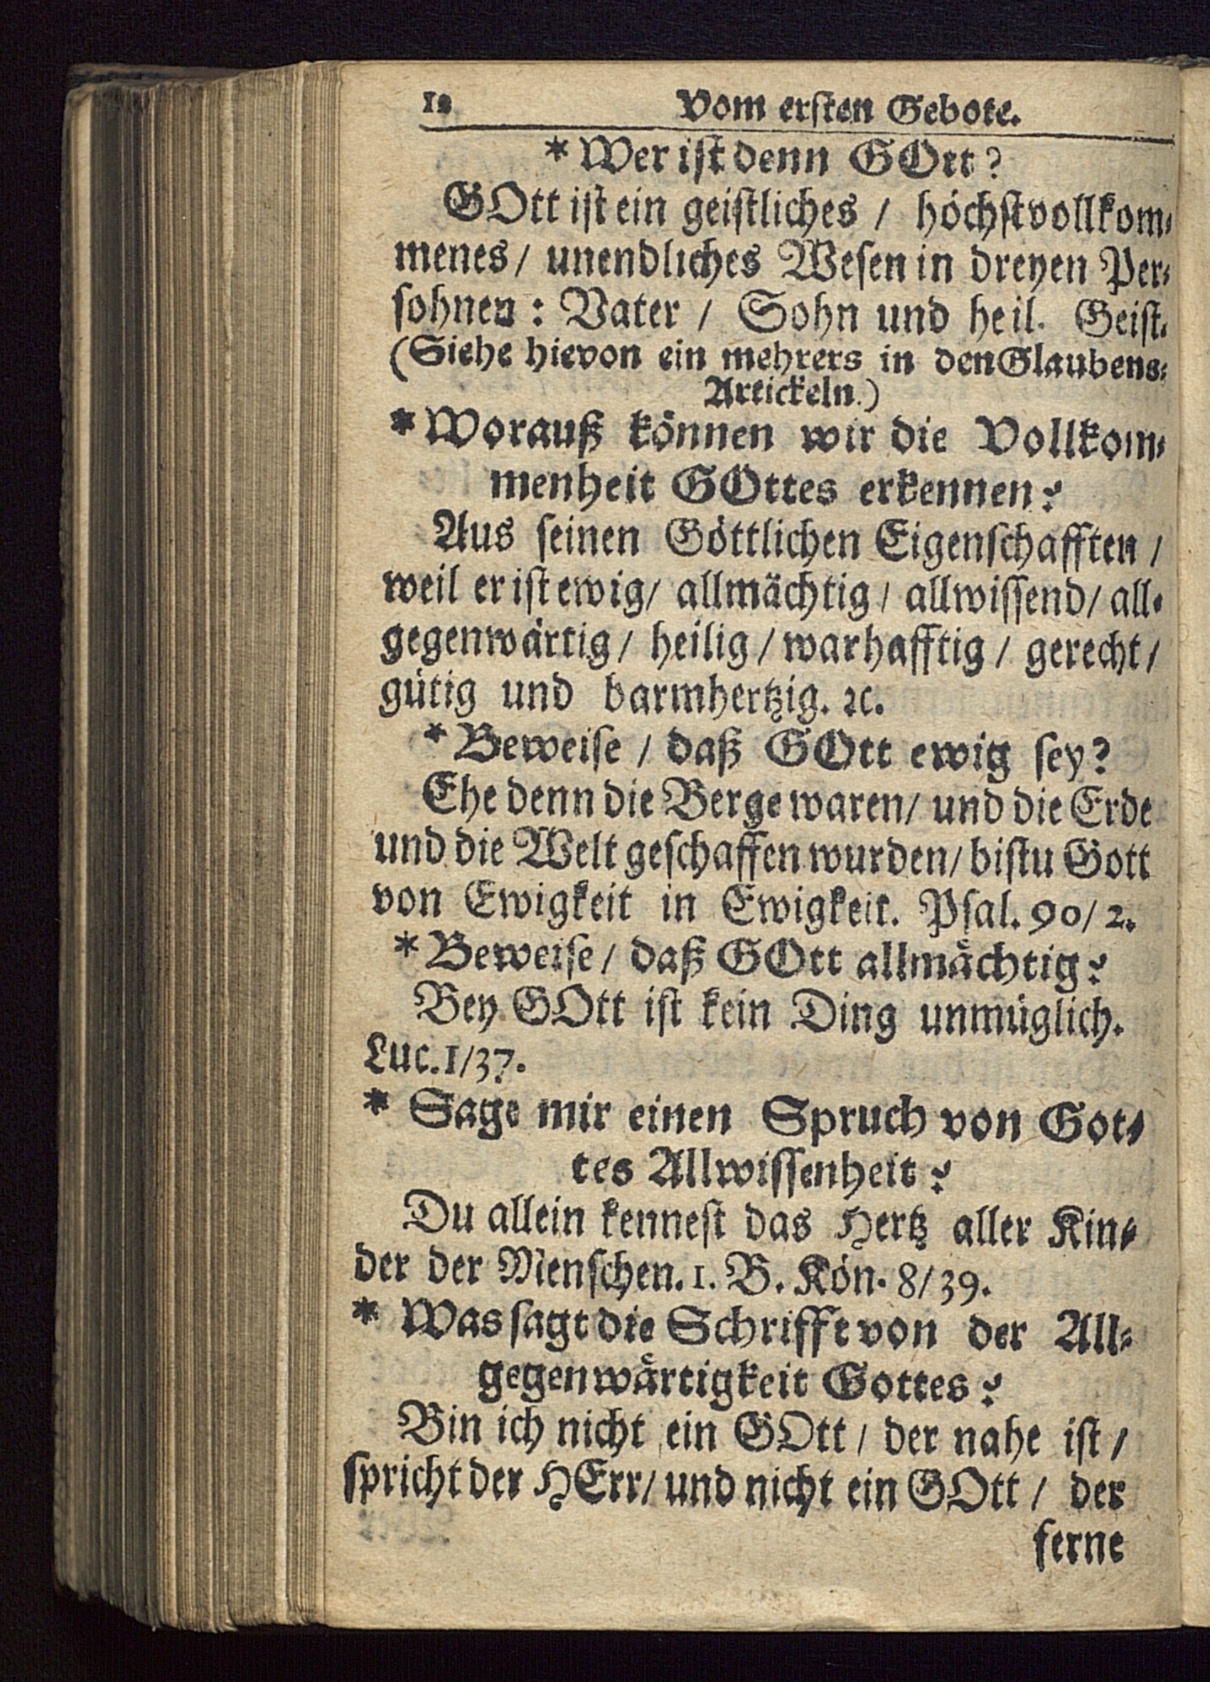 12 Vom ersten Gebote.
* Wer ist denn GOtt?
GOtt ist ein geistliches / höchstvollkom-
menes / unendliches Wesen in dreyen Per-
sohnen : Vater / Sohn und heil. Geist.
(Siehe hievon ein mehrers in den Glaubens-
Artickeln.)
* Worauß können wir die Vollkom-
menheit GOttes erkennen?
Aus seinen Göttlichen Eigenschafften /
weil er ist ewig / allmächtig / allwissend / all-
gegenwärtig / heilig / warhafftig / gerecht /
gütig und barmhertzig. ꝛc.
* Beweise / daß GOtt ewig sey?
Ehe denn die Berge waren / und die Erde
und die Welt geschaffen wurden / bistu Gott
von Ewigkeit in Ewigkeit. Psal. 90/2.
* Beweise / daß GOtt allmächtig?
Bey GOtt ist kein Ding unmüglich.
Luc. 1/37.
* Sage mir einen Spruch von Got-
tes Allwissenheit?
Du allein kennest das Hertz aller Kin-
der der Menschen. 1. B. Kön. 8/39.
* Was sagt die Schrifft von der All-
gegenwärtigkeit Gottes?
Bin ich nicht ein GOtt / der nahe ist /
spricht der HErr / und nicht ein GOtt / der
ferne